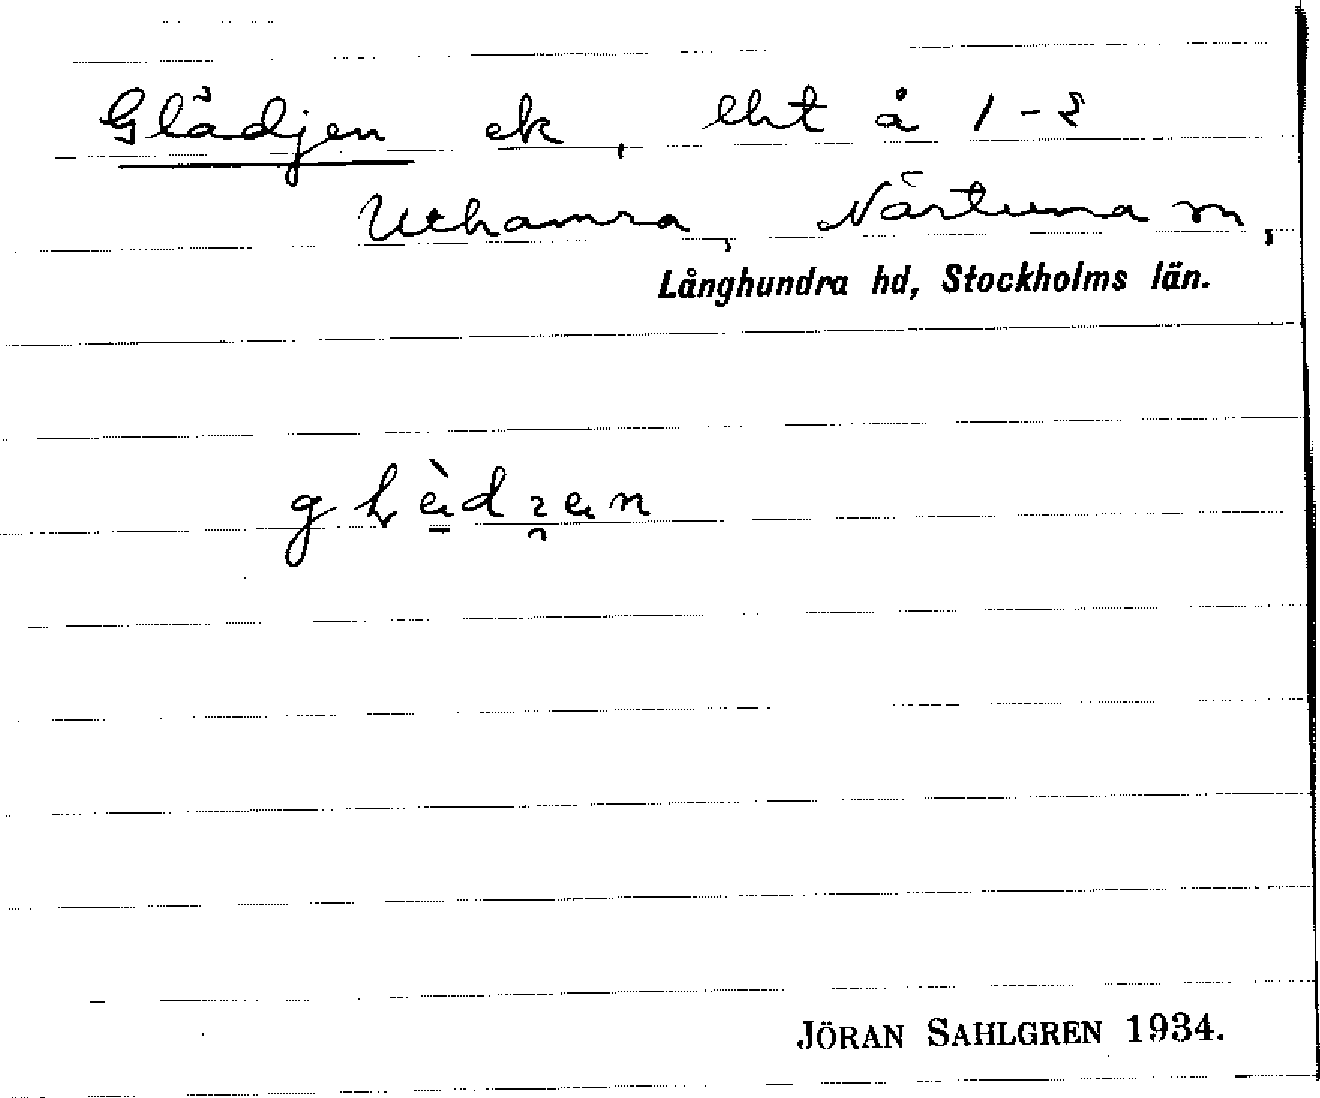 Glädjen ek, lht å 1-2
Uthamra, Närtuna sn,
Långhundra hd, Stockholms län.
JÖRAN SAHLGREN 1934.